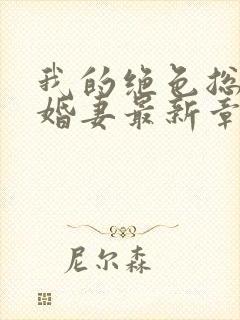 我的绝色总
婚妻最新章
尼尔森